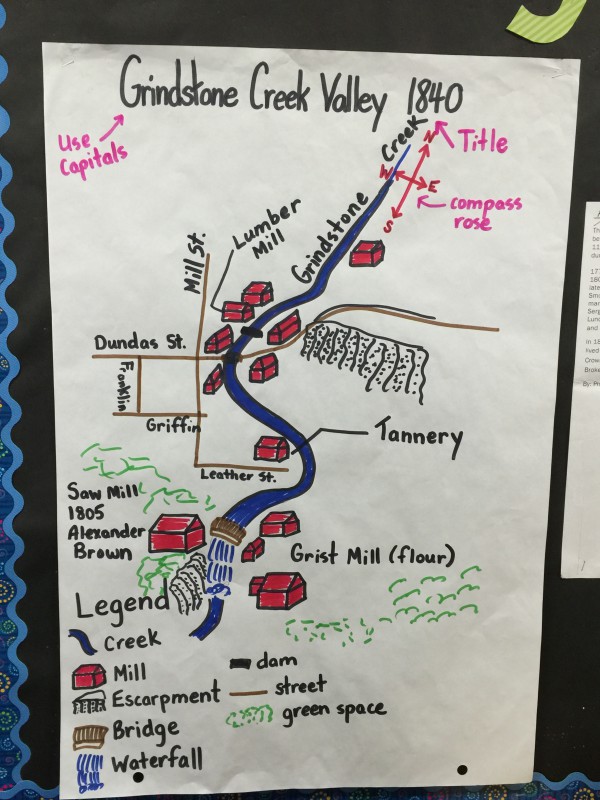 Grindstone Creek Valley 1840
Use
Capitals
Title
N
W
E
S
compass
rose
Grindstone Creek
Lumber
Mill
Mill St.
Dundas St.
Franklin
Griffin
Leather St.
Tannery
Saw Mill
1805
Alexander
Brown
Grist Mill (flour)
Legend
Creek
Mill
Escarpment
Bridge
Waterfall
dam
street
green space